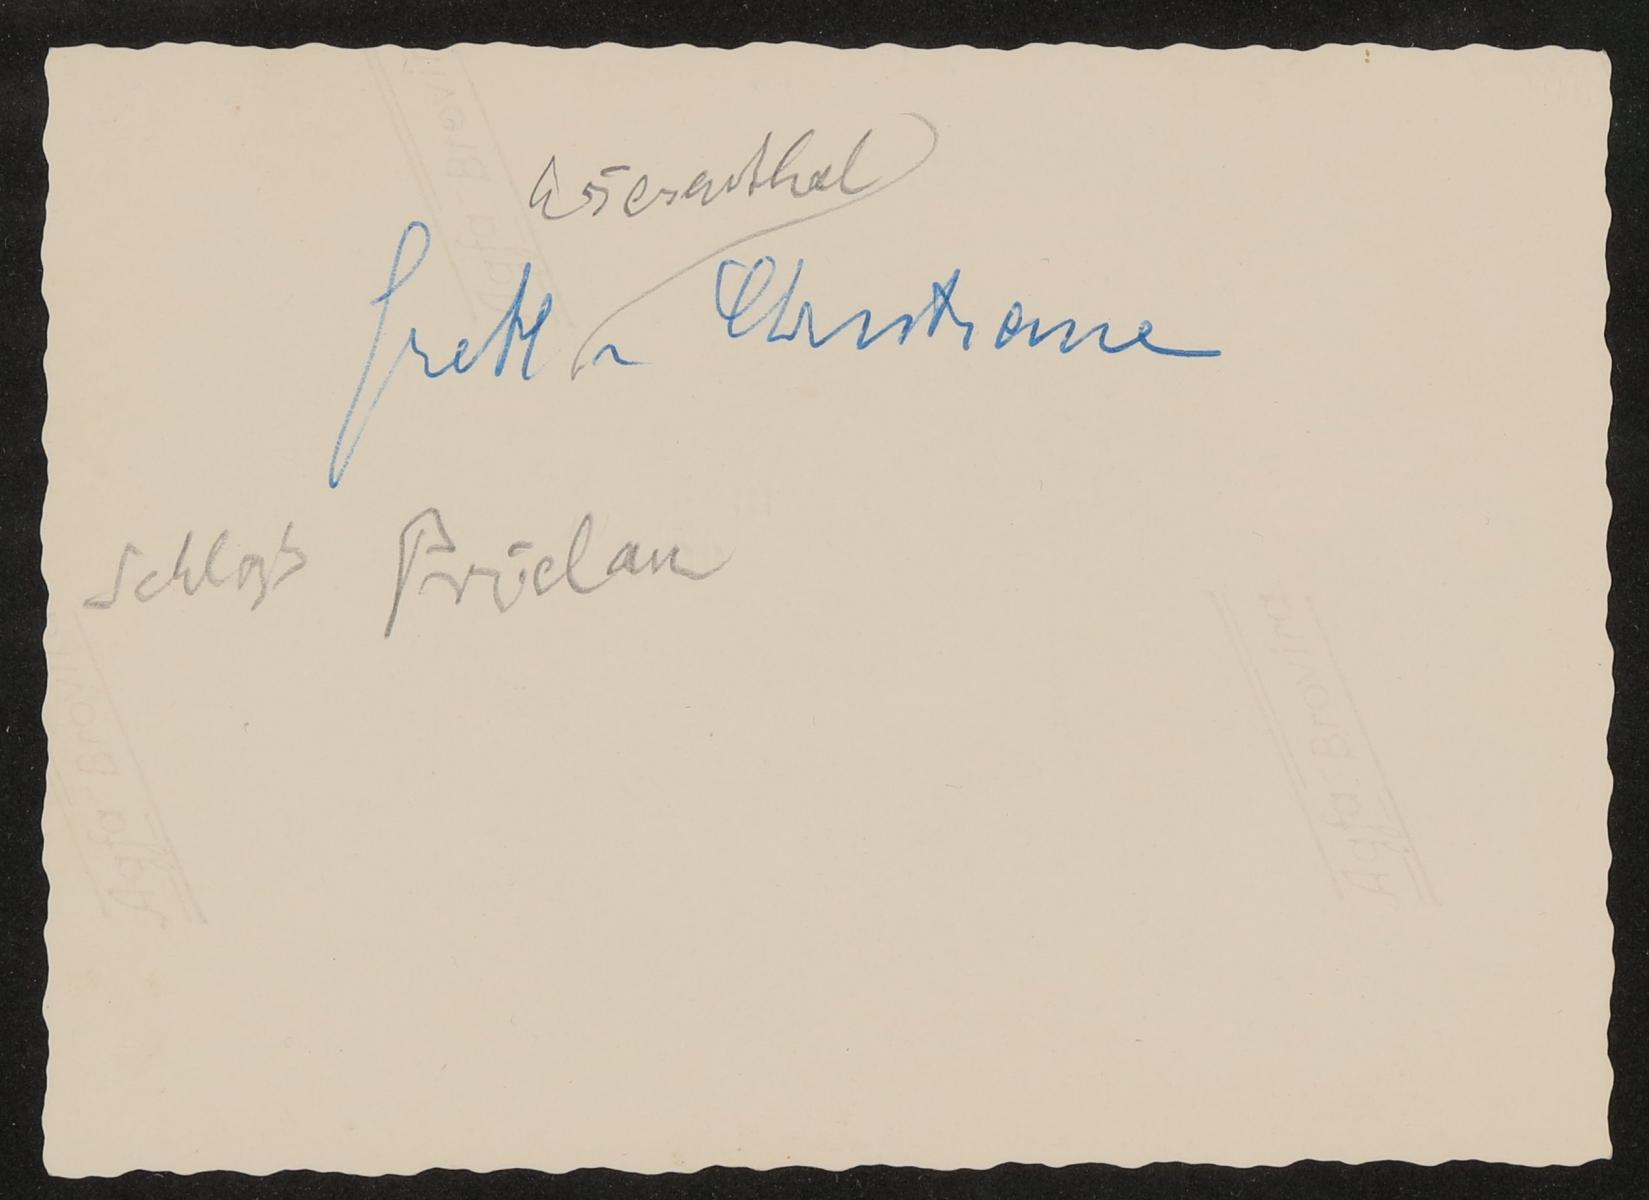 Wiesenthal
Gretl u Christiane
Schloß Prielau
Agfa-Brovira
Agfa-Brovira
Agfa-Brovira